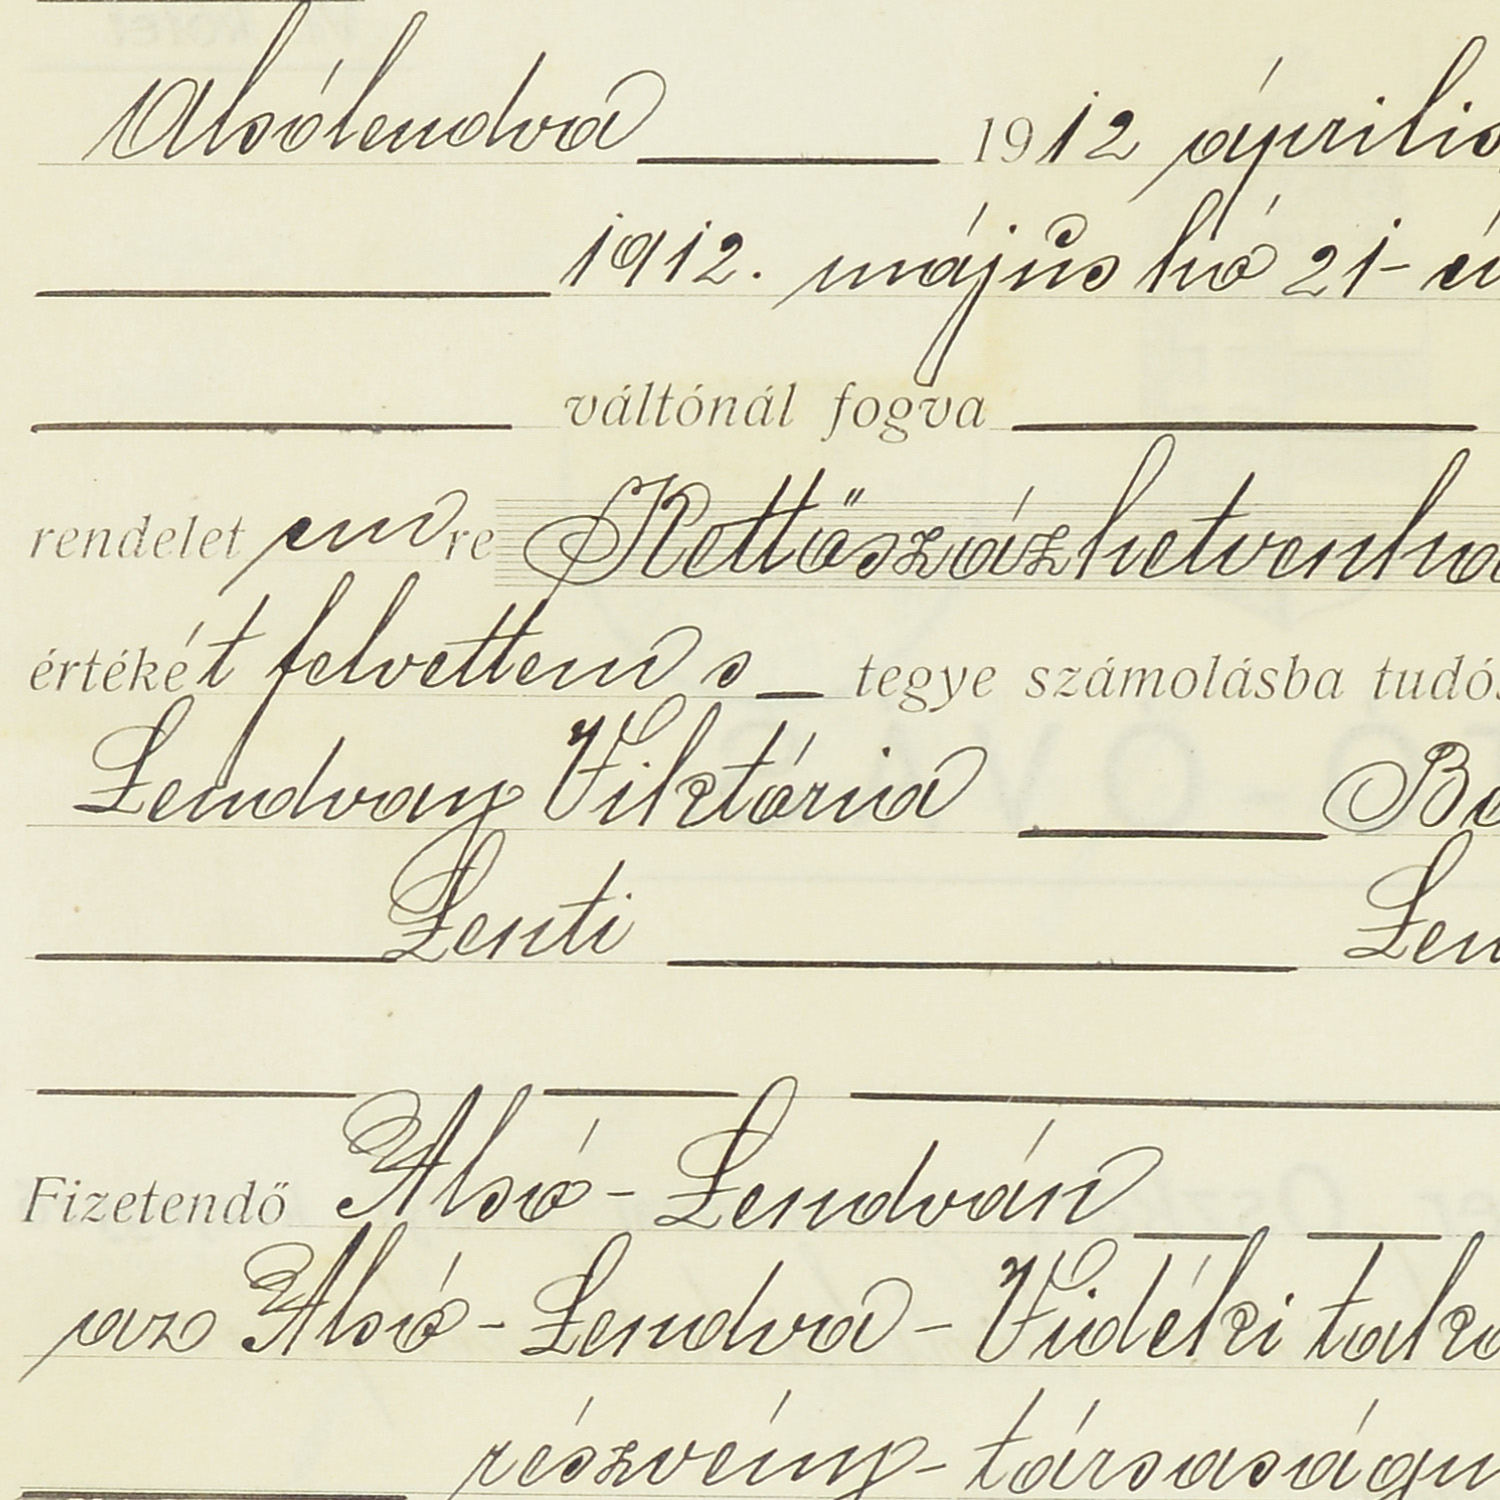 Alsólendva 1912 április
1912. május hó 21-én
váltónál fogva
rendelet em re Kettőszázhetvenha
értékét felvettem s tegye számolásba tudós
Lendvay Viktória Ba
Lenti Len
Fizetendő Alsó-Lendván
az Alsó-Lendva-Vidéki taka
részvény-társaságn